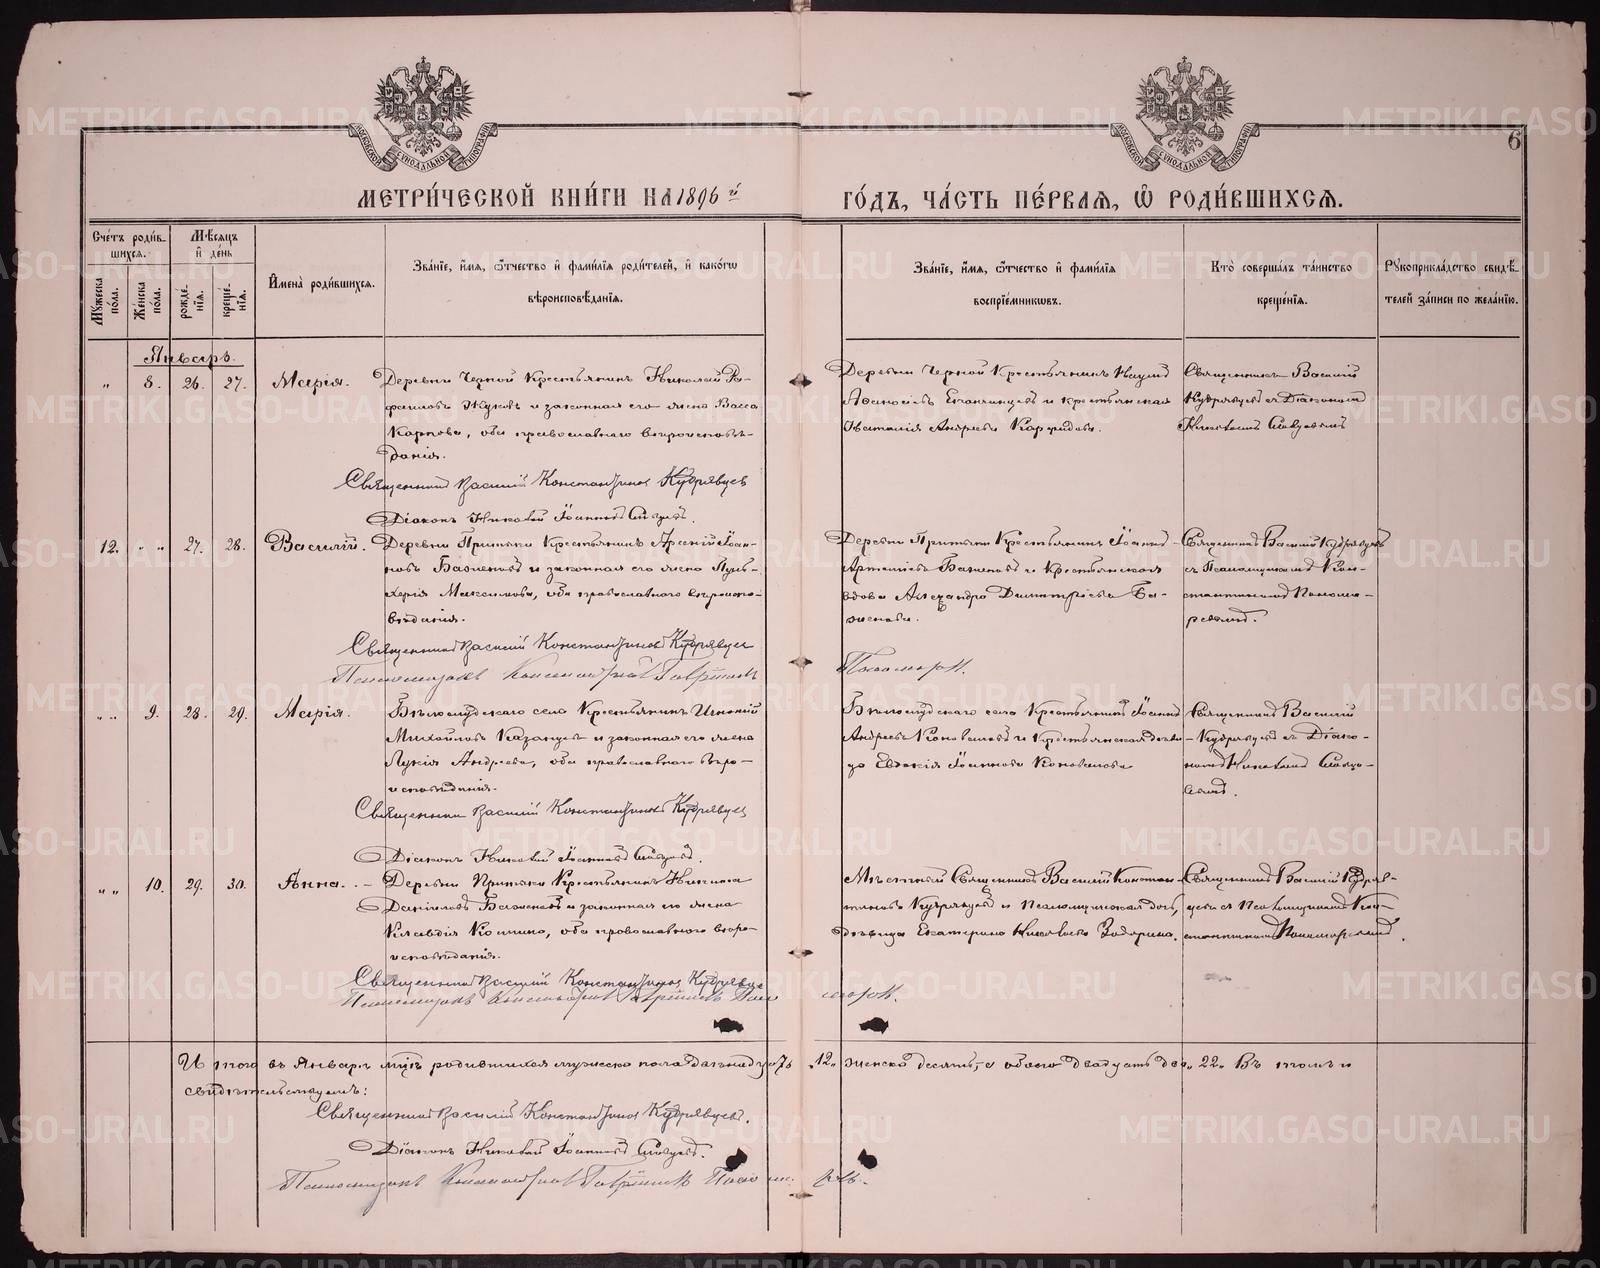 МЕТРИ́ЧЕСКОЙ КНИ́ГИ НА 1896й ГО́ДЪ, ЧА́СТЬ ПЕ́РВАЯ, Ѡ РОДИ́ВШИХСЯ.
6
Сче́тъ роди́вшихся.
Мѣ́сяцъ и де́нь
Му́жеска по́ла.
Же́нска по́ла.
рожде́нїя.
креще́нїя.
И҆мена̀ роди́вшихся.
Зва́нїе, и҆́мя, ѻ҆́тчество и҆ фами́лїя роди́телей, и҆ како́гѡ
вѣроисповѣ́данїя.
Зва́нїе, и҆́мя, ѻ҆́тчество и҆ фами́лїя
воспрїе́мникѡвъ.
Кто̀ соверша́лъ та́инство
креще́нїя.
Рꙋкоприкла́дство свидѣ́-
телей за́писи по жела́нїю.
Январь.
„ 8. 26. 27. Марія.
Деревни Черной Крестьянинъ Николай Ра-
фаиловъ Жуковъ и законная его жена Васса
Карпова, оба православнаго вѣроисповѣ-
данія.
Священникъ Василій Константиновъ Кудрявцевъ
Діаконъ Николай Іоанновъ
Деревни Черной Крестьянинъ Наумъ
и крестьянская
Наталія Андреева
Священникъ Василій
Кудрявцевъ съ Діакономъ
Николаемъ
12. „ „ 27. 28. Василій.
Деревни Притыки Крестьянинъ Арсеній Іоан-
новъ Баженовъ и законная его жена Пуль-
херія Максимова, оба православнаго вѣроиспо-
вѣданія.
Священникъ Василій Константиновъ Кудрявцевъ
Псаломщикъ Константинъ Гавріиловъ Пономарев.
Деревни Притыки Крестьянинъ Іоаннъ
Артеміевъ Баженовъ и Крестьянская
вдова Александра Димитріева Ба-
женова.
Священникъ Василій Кудрявцевъ
съ Псаломщикомъ Кон-
стантиномъ Понома-
ревымъ.
„ „ 9. 28. 29. Марія.
Бѣлослудскаго села Крестьянинъ
Михайловъ Казанцевъ и законная его жена
Лукія Андреева, оба православнаго вѣро-
исповѣданія.
Священникъ Василій Константиновъ Кудрявцевъ
Діаконъ Николай Іоанновъ
Бѣлослудскаго села Крестьянинъ Іоаннъ
Андреевъ Коноваловъ и Крестьянская дѣви-
ца Евдокія Іоаннова Коновалова
Священникъ Василій
Кудрявцевъ съ Діако-
номъ Николаемъ
„ „ 10. 29. 30. Анна.
Деревни Притыки Крестьянинъ Никита
Даніиловъ Баженовъ и законная его жена
Клавдія Космина, оба православнаго вѣро-
исповѣданія.
Священникъ Василій Константиновъ Кудрявцевъ
Псаломщикъ Константинъ Гавріиловъ Пономарев.
Мѣстный Священникъ Василій Констан-
тиновъ Кудрявцевъ и Псаломщическая дочь,
дѣвица Екатерина Николаева
Священникъ Василій Кудряв-
цевъ съ Псаломщикомъ Кон-
стантиномъ Пономаревымъ.
Итого въ Январѣ мцѣ родившихся мужеска пола двѣнадцать „12„ женска десять, а обоего двадцать два „22„ Въ томъ и
свидѣтельствуемъ:
Священникъ Василій Константиновъ Кудрявцевъ.
Діаконъ Николай Іоанновъ
Псаломщикъ Константинъ Гавріиловъ Пономаревъ.
METRIKI.GASO-URAL.RU